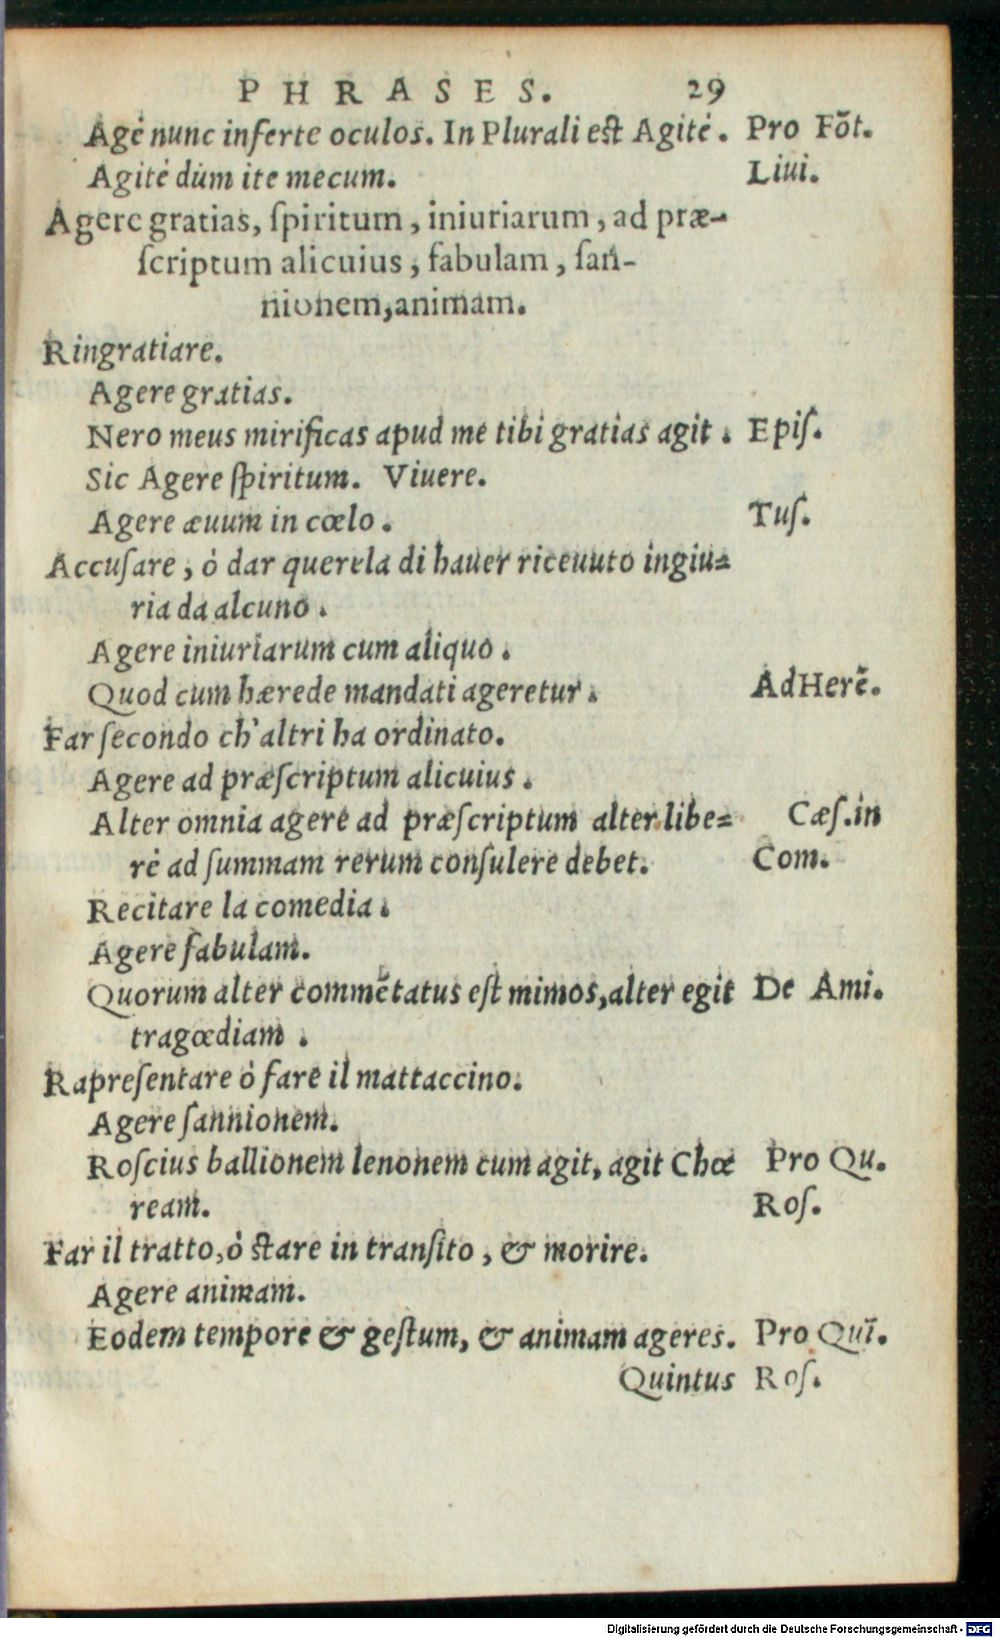 PHRASES. 29
Agé nunc inferte oculos. In Plurali est Agité. Pro Fōt.
Agité dùm ite mecum. Liui.
Agere gratias, ſpiritum, iniuriarum, ad præ-
ſcriptum alicuius, fabulam, ſan-
nionem, animam.
Ringratiare.
Agere gratias.
Nero meus mirificas apud me tibi gratias agit. Epiſ.
Sic Agere ſpiritum. Viuere.
Agere æuum in cœlo. Tuſ.
Accuſare, ò dar querela di hauer riceuuto ingiu=
ria da alcuno.
Agere iniuriarum cum aliquo.
Quod cum hærede mandati ageretur. Ad Herē.
Far ſecondo ch'altri ha ordinato.
Agere ad præſcriptum alicuius.
Alter omnia ageré ad præſcriptum alter libe= Cæſ. in
ré ad ſummam rerum conſulere debet. Com.
Recitare la comedia.
Agere fabulam.
Quorum alter commētatus eſt mimos, alter egit De Ami.
tragœdiam.
Rapreſentare ò fare il mattaccino.
Agere ſannionem.
Roſcius ballionem lenonem cum agit, agit Chœ Pro Qu.
ream. Roſ.
Far il tratto, ò ſtare in tranſito, & morire.
Agere animam.
Eodem tempore & geſtum, & animam ageres. Pro Quī.
Quintus Roſ.
Digitalisierung gefördert durch die Deutsche Forschungsgemeinschaft - DFG